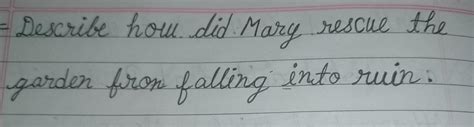 = Describe how did Mary rescue the
garden fron falling into ruin.